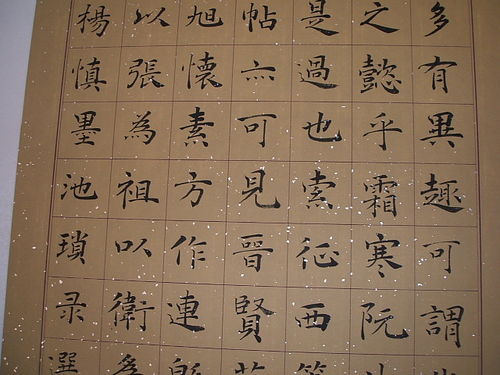 多有異趣可謂
之懿乎霜寒阮
是過也索征西
帖亦可見晉賢
旭懷素方作連
以張為祖以衛為
楊慎墨池瑣录選